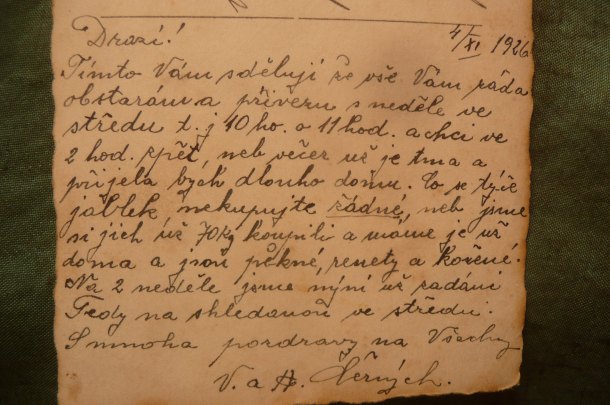 Drazí! 4/XI 1926
Tímto Vám sděluji že vše Vám ráda
obstarám a přivezu s neděle ve
středu t. j 10 ho. a 11 hod. a chci ve
2 hod. zpět, neb večer už je tma a
přijela bych dlouho domu. Co se týče
jablek, nekupujte žádné, neb jsme
si jich už 70 kg koupili a máme je už
doma a jsou pěkné, renety a kožené.
Na 2 neděle jsme nyní už zadáni
Tedy na shledanou ve středu.
S mnoha pozdravy na Všechny
V. a A. Černých.